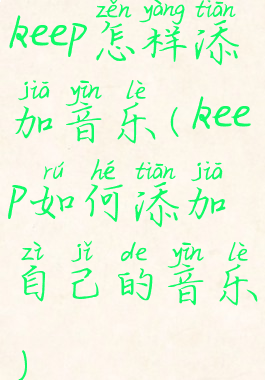 zěn yàng tiān
keep怎样添
jiā yīn lè
加音乐(kee
rú hé tiān jiā
p如何添加
zì jǐ de yīn lè
自己的音乐
)